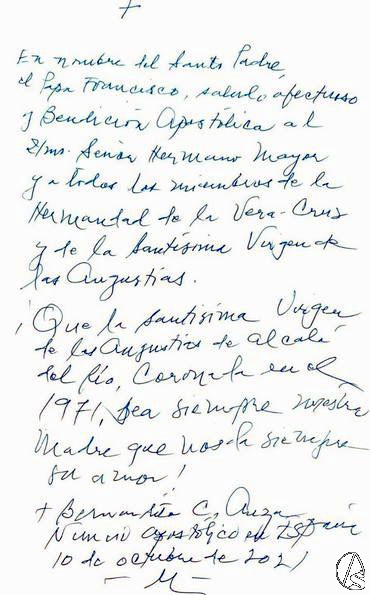 +
En nombre del Santo Padre
el Papa Francisco, saludo afectuoso
y Bendición Apostólica al
Señor Hermano Mayor
y a todos los miembros de la
Hermandad de la Vera-Cruz
y de la Santísima Virgen de
las Angustias.
¡Que la Santísima Virgen
de las Angustias de Alcalá
del Río, Coronada en el
1971, sea siempre nuestra
Madre que nos da siempre
su amor!
+ Bernardito C. Auza
Nuncio Apostólico en España
10 de octubre de 2021